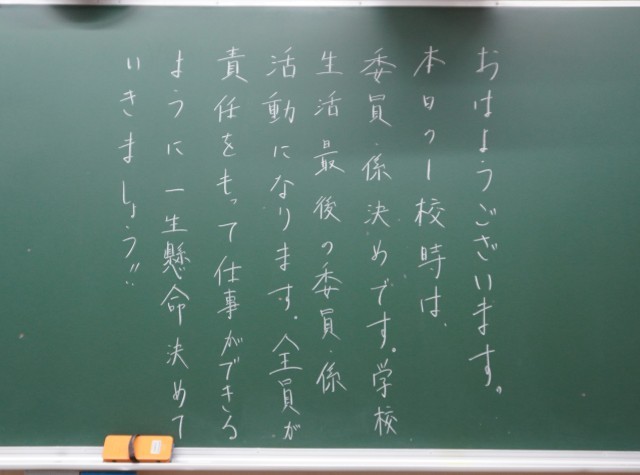 おはようございます。
本日の1校時は、
委員・係決めです。学校
生活最後の委員・係
活動になります。全員が
責任をもって仕事ができる
ように一生懸命決めて
いきましょう!!